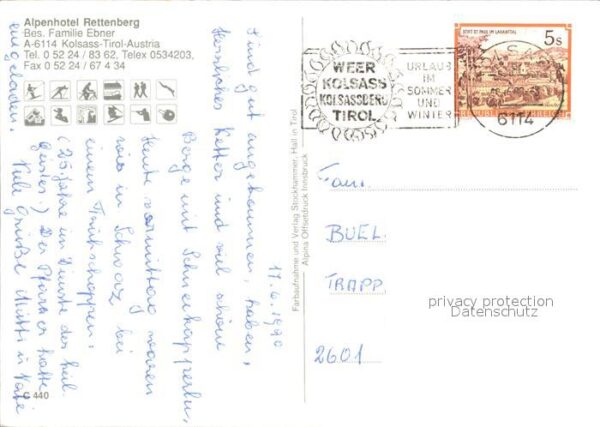 Alpenhotel Rettenberg
Bes. Familie Ebner
A-6114 Kolsass-Tirol-Austria
Tel. 0 52 24 / 83 62, Telex 0534203,
Fax 0 52 24 / 67 4 34
C 440
17.4.1990
Sind gut angekommen, haben
herrliches Wetter und viel schöne
Berge mit Schneekapperln,
heute vormittag waren
wir in Schwaz bei
einem Frühschoppen.
(25 Jahre im Dienste der
.) Der Pfarrer hatte
Viele Grüße Mutti u. Vati
eingeladen.
Farbaufnahme und Verlag Stockhammer, Hall in Tirol
Alpina Offsetdruck Innsbruck
WEER
KOLSASS
KOLSASSBERG
TIROL
URLAUB
IM
SOMMER
UND
WINTER
6114
STIFT ST. PAUL IM LAVANTTAL
5s
REPUBLIK ÖSTERREICH
Fam.
BUEL
TRAPP
2601
privacy protection
Datenschutz